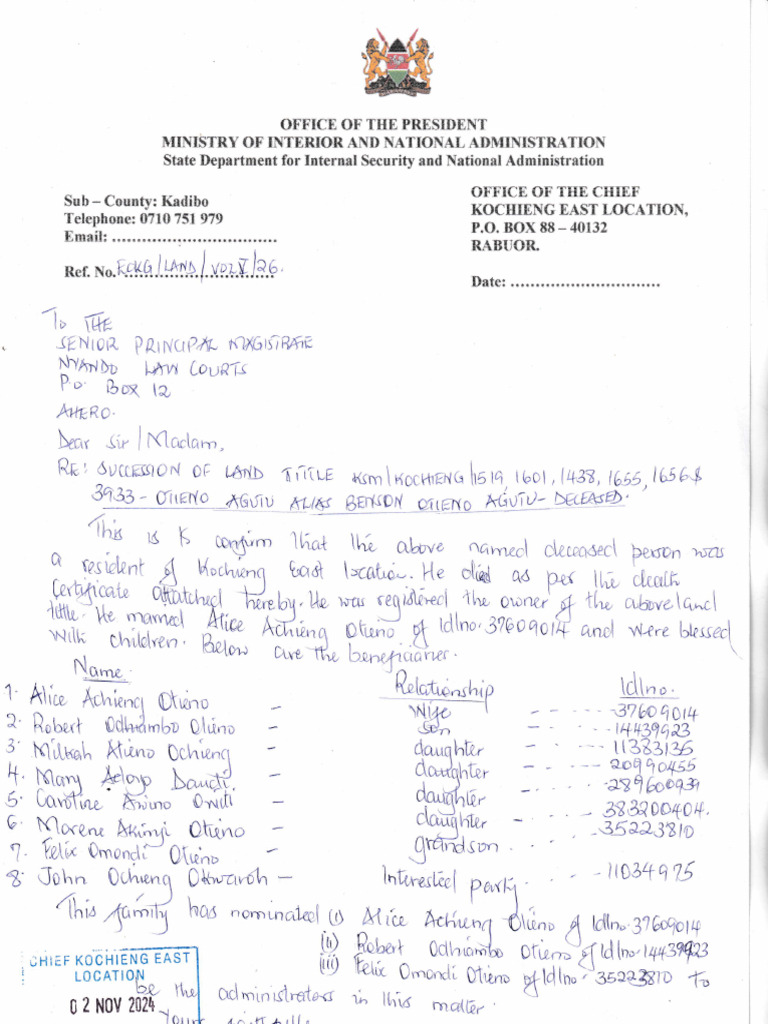 OFFICE OF THE PRESIDENT
MINISTRY OF INTERIOR AND NATIONAL ADMINISTRATION
State Department for Internal Security and National Administration
Sub – County: Kadibo
Telephone: 0710 751 979
Email: ................................
Ref. No. ECKG/LAND/VOL V/26.
OFFICE OF THE CHIEF
KOCHIENG EAST LOCATION,
P.O. BOX 88 – 40132
RABUOR.
Date: ..............................
To THE
SENIOR PRINCIPAL MAGISTRATE
NYANDO LAW COURTS
P.O. BOX 12
AHERO.
Dear Sir/Madam,
RE: SUCCESSION OF LAND TITTLE KSM/KOCHIENG/1519, 1601, 1438, 1655, 1656 $
3933 - OTIENO AGUTU ALIAS BENSON OTIENO AGUTU - DECEASED.
This is to confirm that the above named deceased person was
a resident of Kochieng East location. He died as per the death
Certificate attatched hereby. He was registered the owner of the above land
tittle. He married Alice Achieng Otieno of Idlno. 37609014 and were blessed
with children. Below are the beneficiaries.
Name Relationship Idlno.
1. Alice Achieng Otieno - Wife - 37609014
2. Robert Odhiambo Otieno - son - 14439923
3. Milkah Atieno Ochieng - daughter - 11383135
4. Mary - daughter - 20990455
5. Caroline Awino Owiti - daughter - 289600939
6. Morene Akinyi Otieno - daughter - 383200404.
7. Felix Omondi Otieno - grandson - 35223810
8. John Ochieng Okwaroh - Interested party - 11034975
This family has nominated (i) Alice Achieng Otieno of Idlno. 37609014
(ii) Robert Odhiambo Otieno of Idlno. 14439923
(iii) Felix Omondi Otieno of Idlno. 35223810 to
be the administrators in this matter.
CHIEF KOCHIENG EAST
LOCATION
02 NOV 2024
Yours